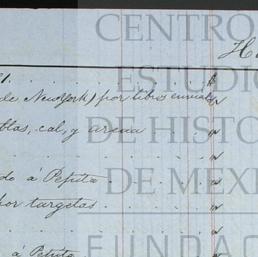 CENTRO
H
ESTUDIO
1.
de New York) por libros enviados
DE HISTO
blas, cal, y arena
DE MEXI
do á Pepita
por targetas
FUNDAC
á Pepita